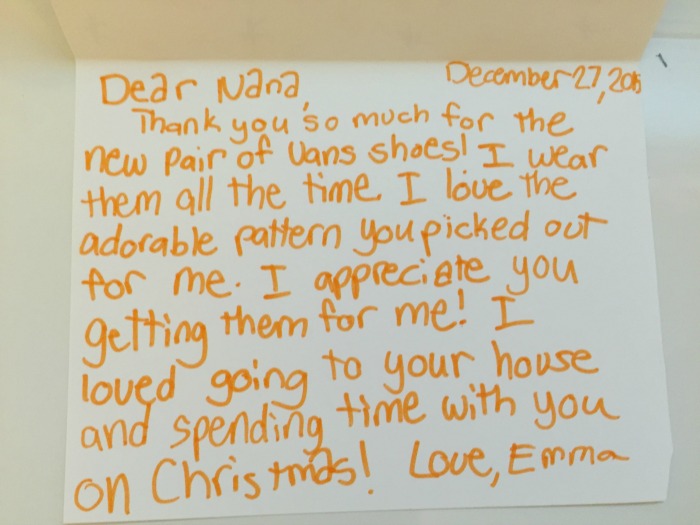 Dear Nana, December 27, 2015
Thank you so much for the
new pair of Vans shoes! I wear
them all the time. I love the
adorable pattern you picked out
for me. I appreciate you
getting them for me! I
loved going to your house
and spending time with you
on Christmas! Love, Emma